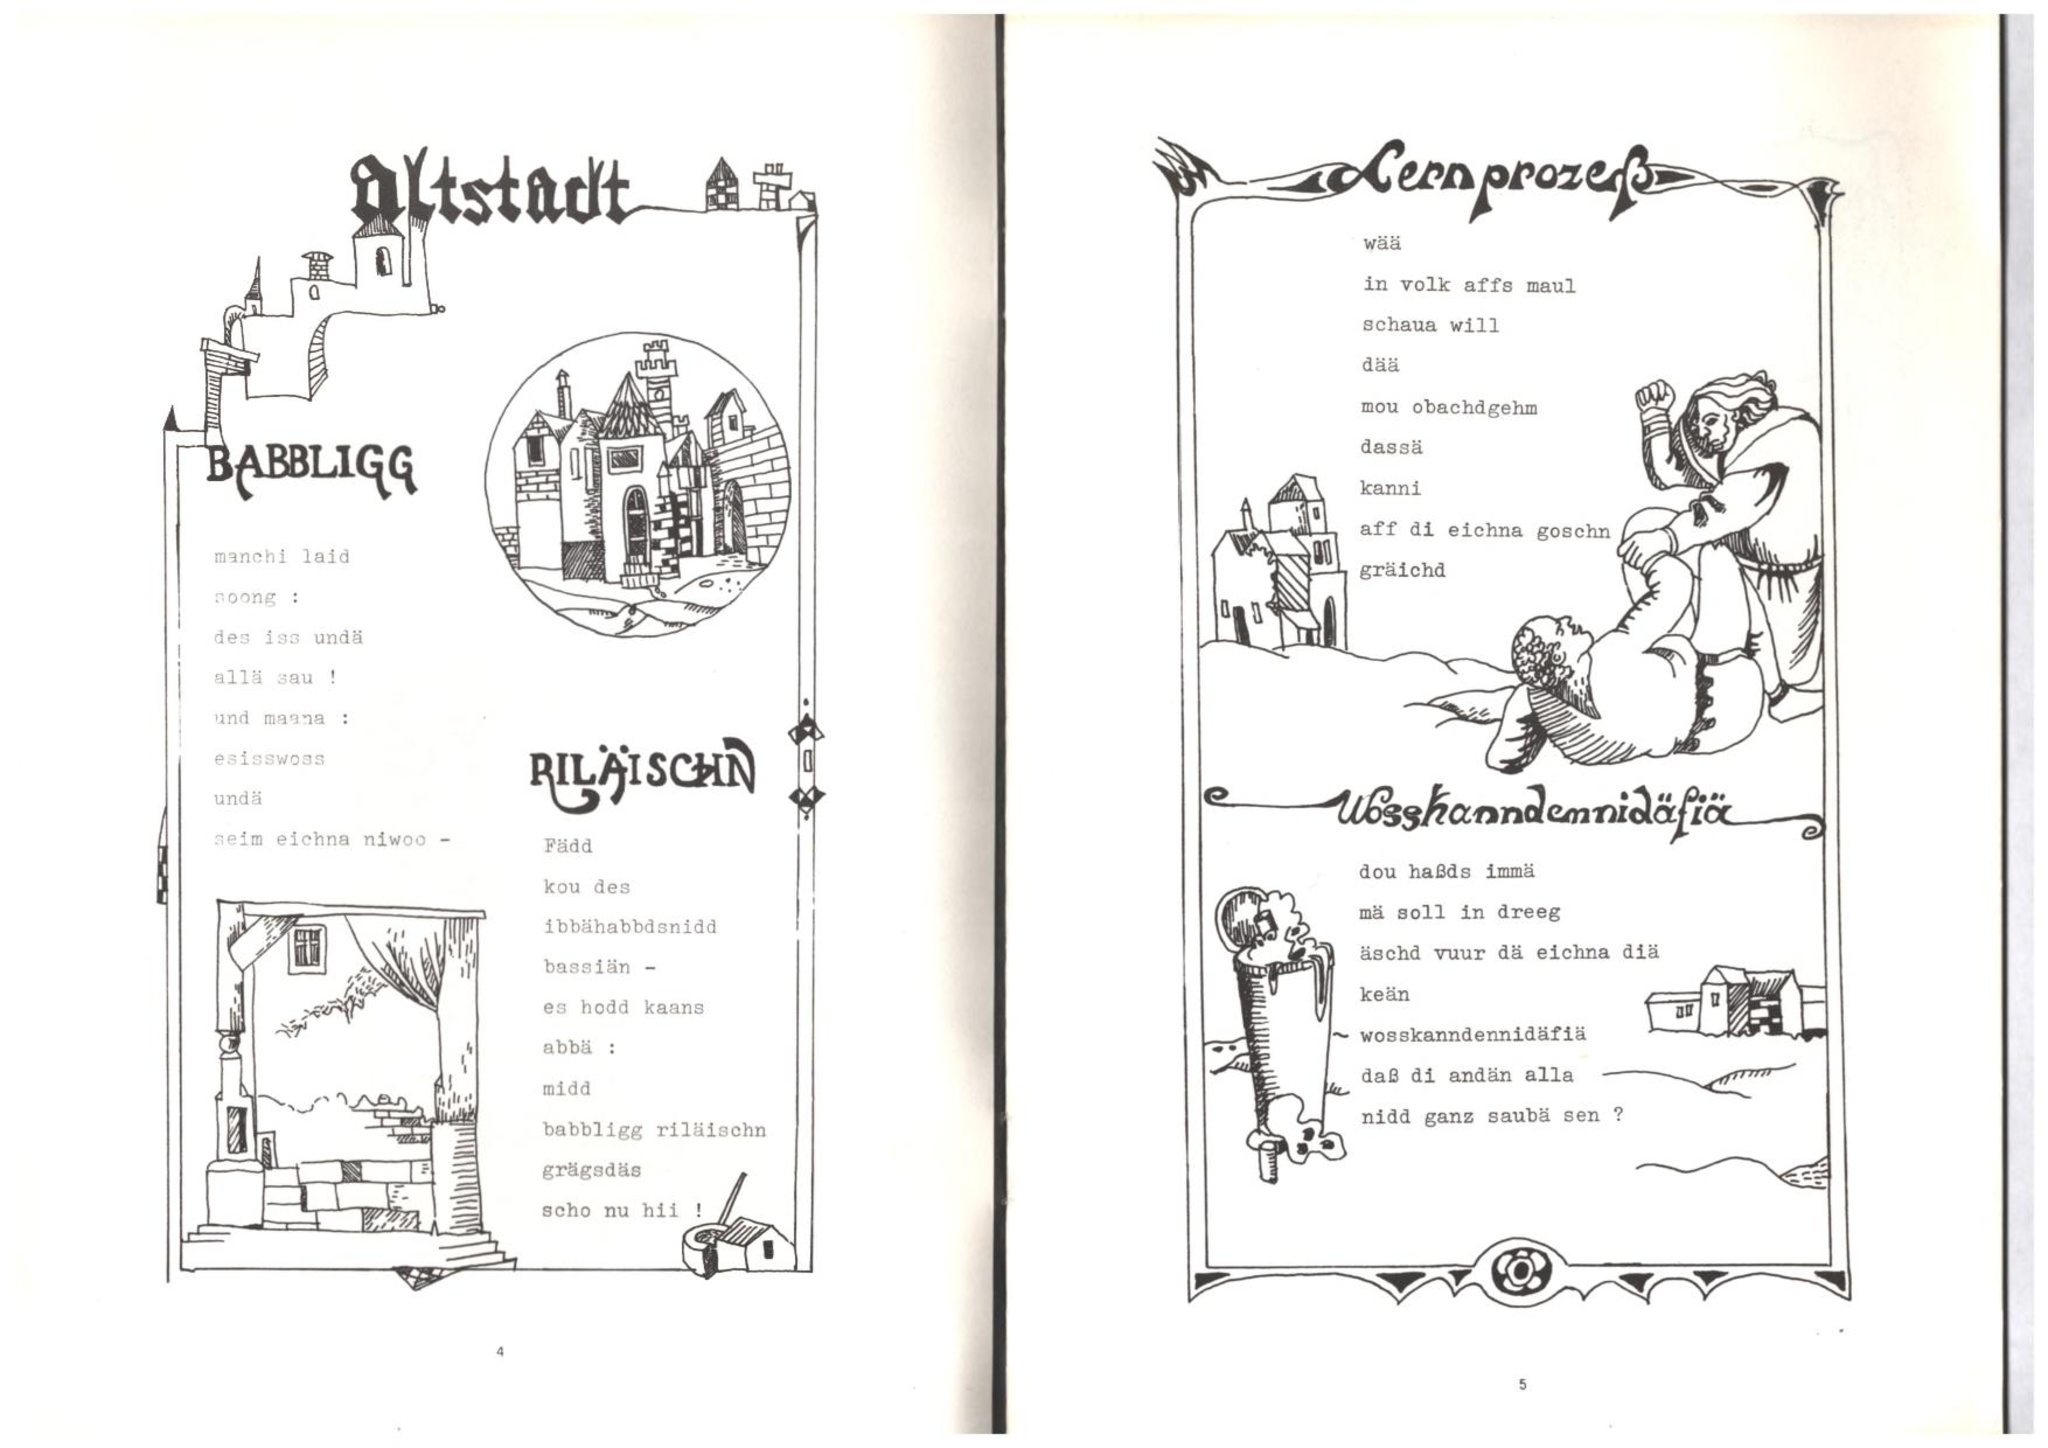 Altstadt
BABBLIGG
manchi laid
soong :
des iss undä
allä sau !
und maana :
esisswoss
undä
seim eichna niwoo -
RILÄISCHN
Fädd
kou des
ibbähabbdsnidd
bassiän -
es hodd kaans
abbä :
midd
babbligg riläischn
grägsdäs
scho nu hii !
4
Lernprozeß
wää
in volk affs maul
schaua will
dää
mou obachdgehm
dassä
kanni
aff di eichna goschn
gräichd
Wosskanndennidäfiä
dou haßds immä
mä soll in dreeg
äschd vuur dä eichna diä
keän
wosskanndennidäfiä
daß di andän alla
nidd ganz saubä sen ?
5